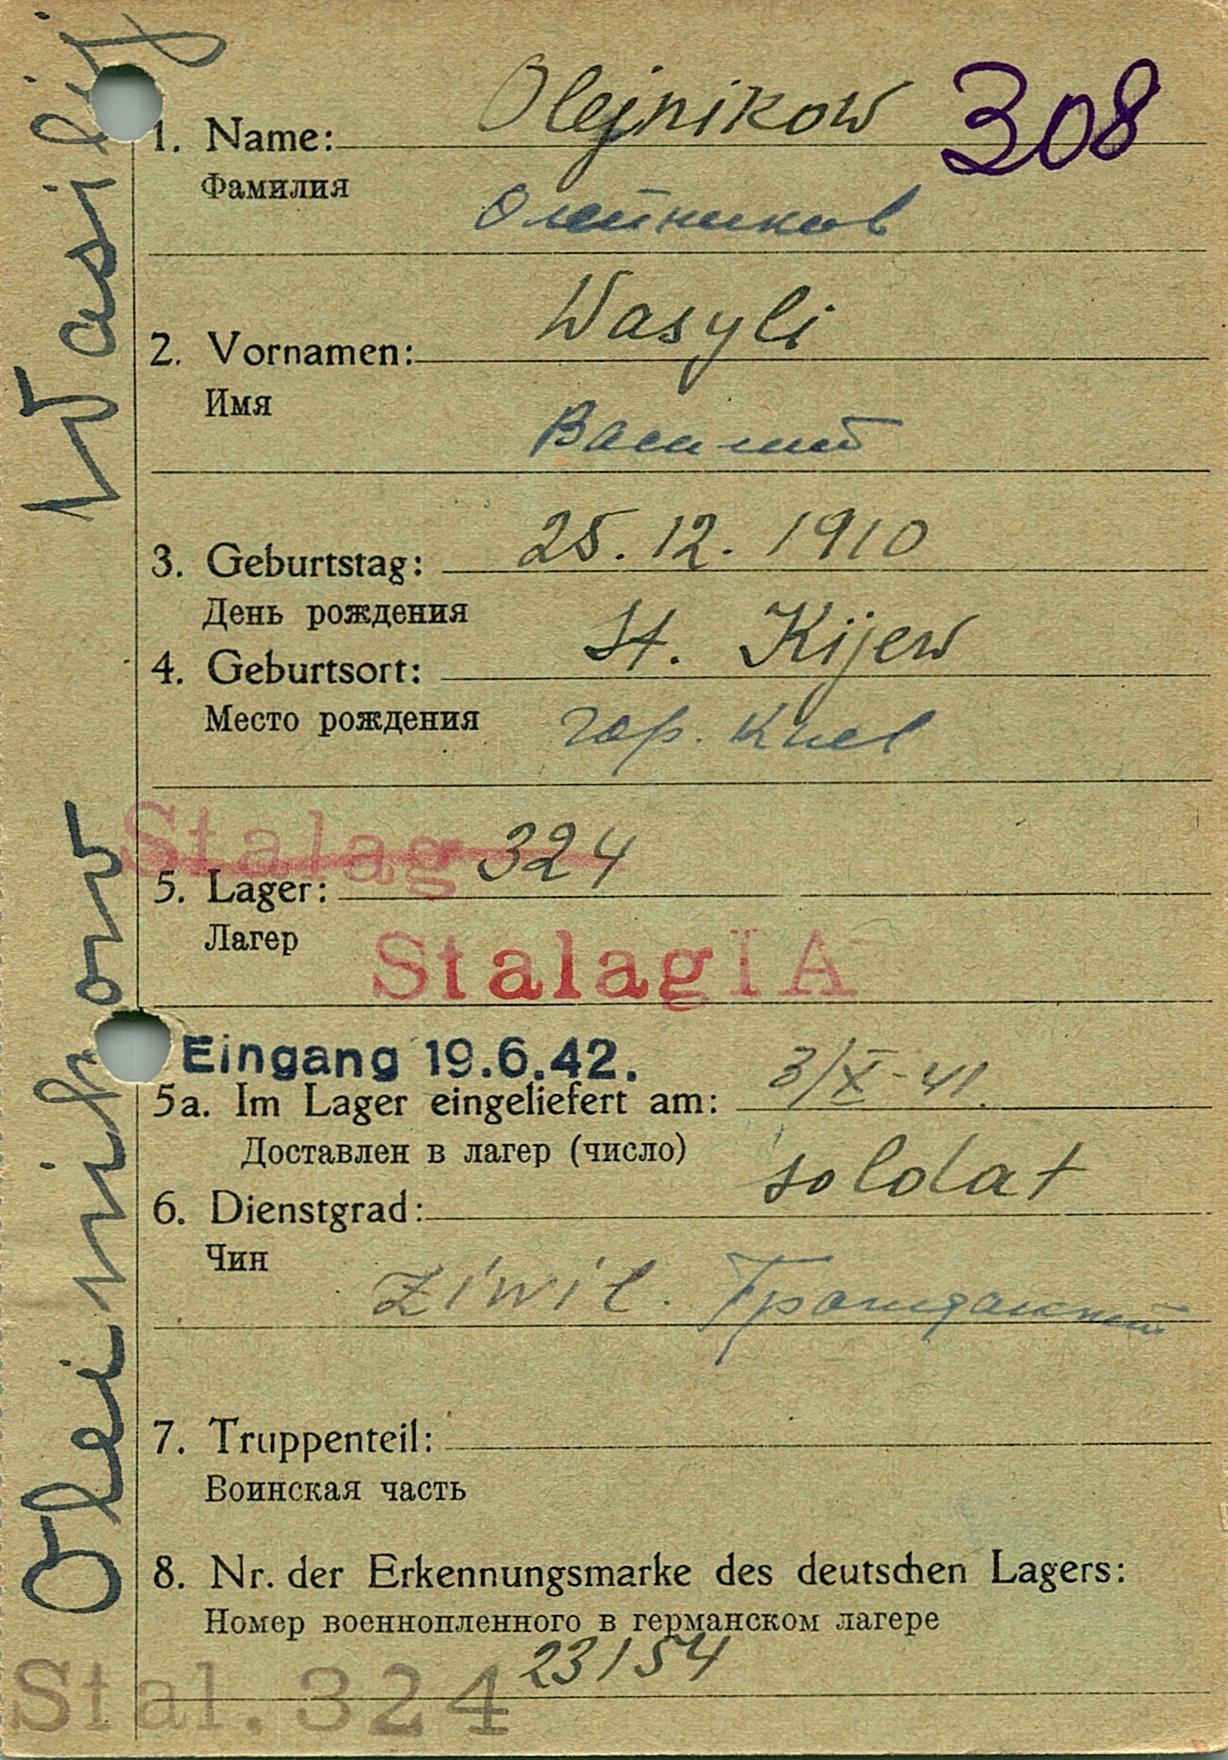 Oleinikow Wasilij
308
1. Name: Olejnikow
Фамилия Олейников
2. Vornamen: Wasyli
Имя Василий
3. Geburtstag: 25. 12. 1910
День рождения
4. Geburtsort: St. Kijew
Место рождения гор. Киев
Stalag 324
5. Lager:
Лагер
Stalag I A
Eingang 19.6.42.
5a. Im Lager eingeliefert am: 3/X-41.
Доставлен в лагер (число)
6. Dienstgrad: soldat
Чин
Ziwil. Гражданский
7. Truppenteil:
Воинская часть
8. Nr. der Erkennungsmarke des deutschen Lagers:
Номер военнопленного в германском лагере
23154
Stal. 324